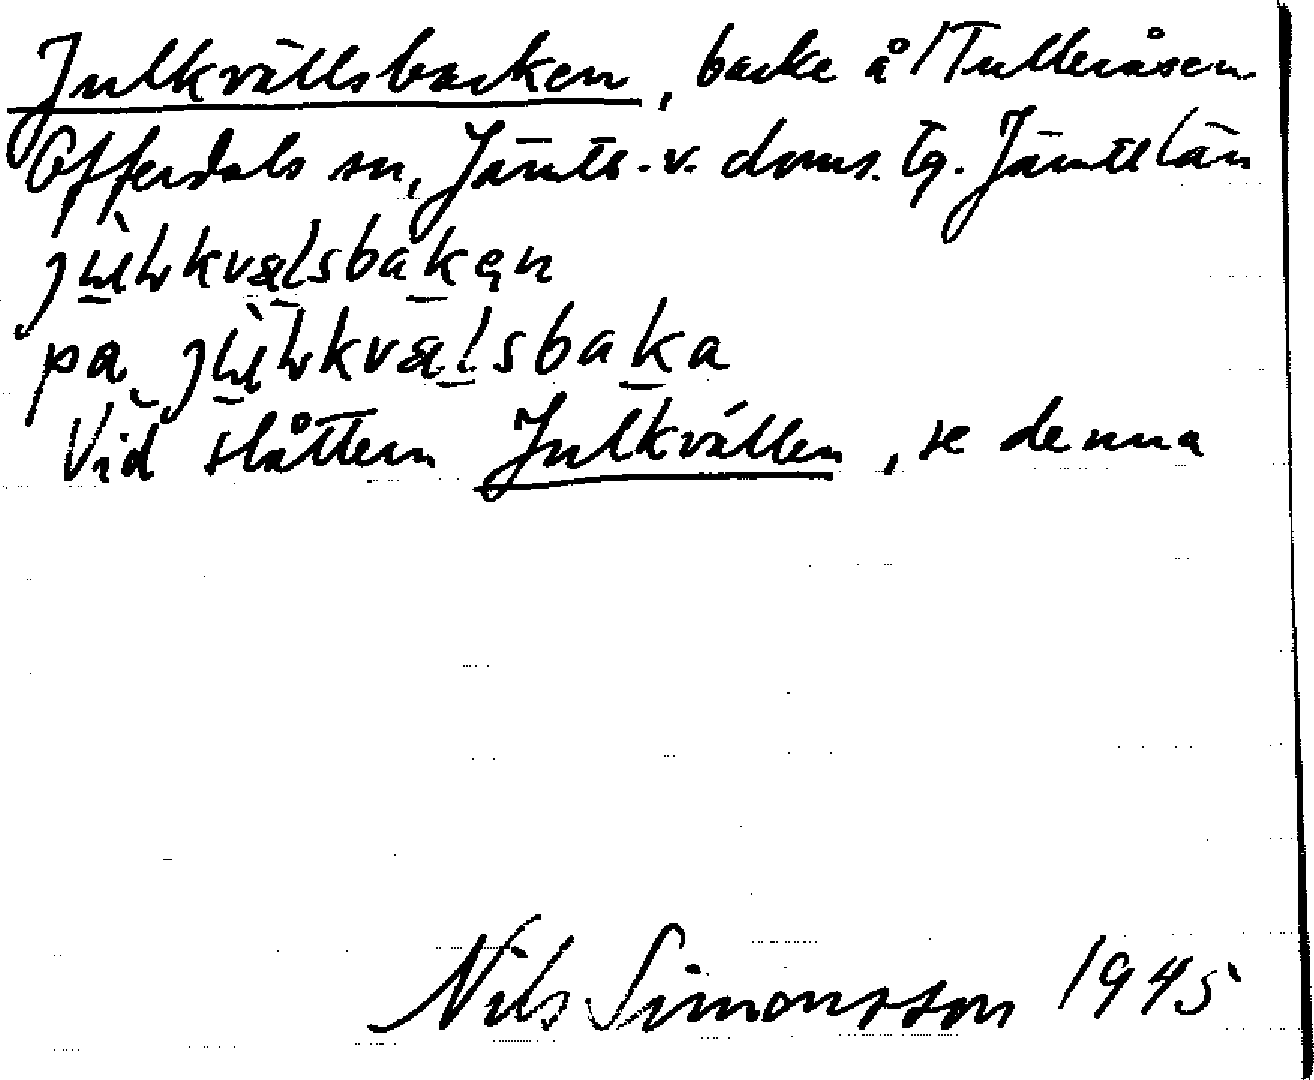 Julkvällsbacken, backe å Tulleråsen
Offerdals sn, Jämtl. v. doms. tg. Jämtl län
på
Vid slåttern Julkvällen, se denna
Nils Simonsson 1945